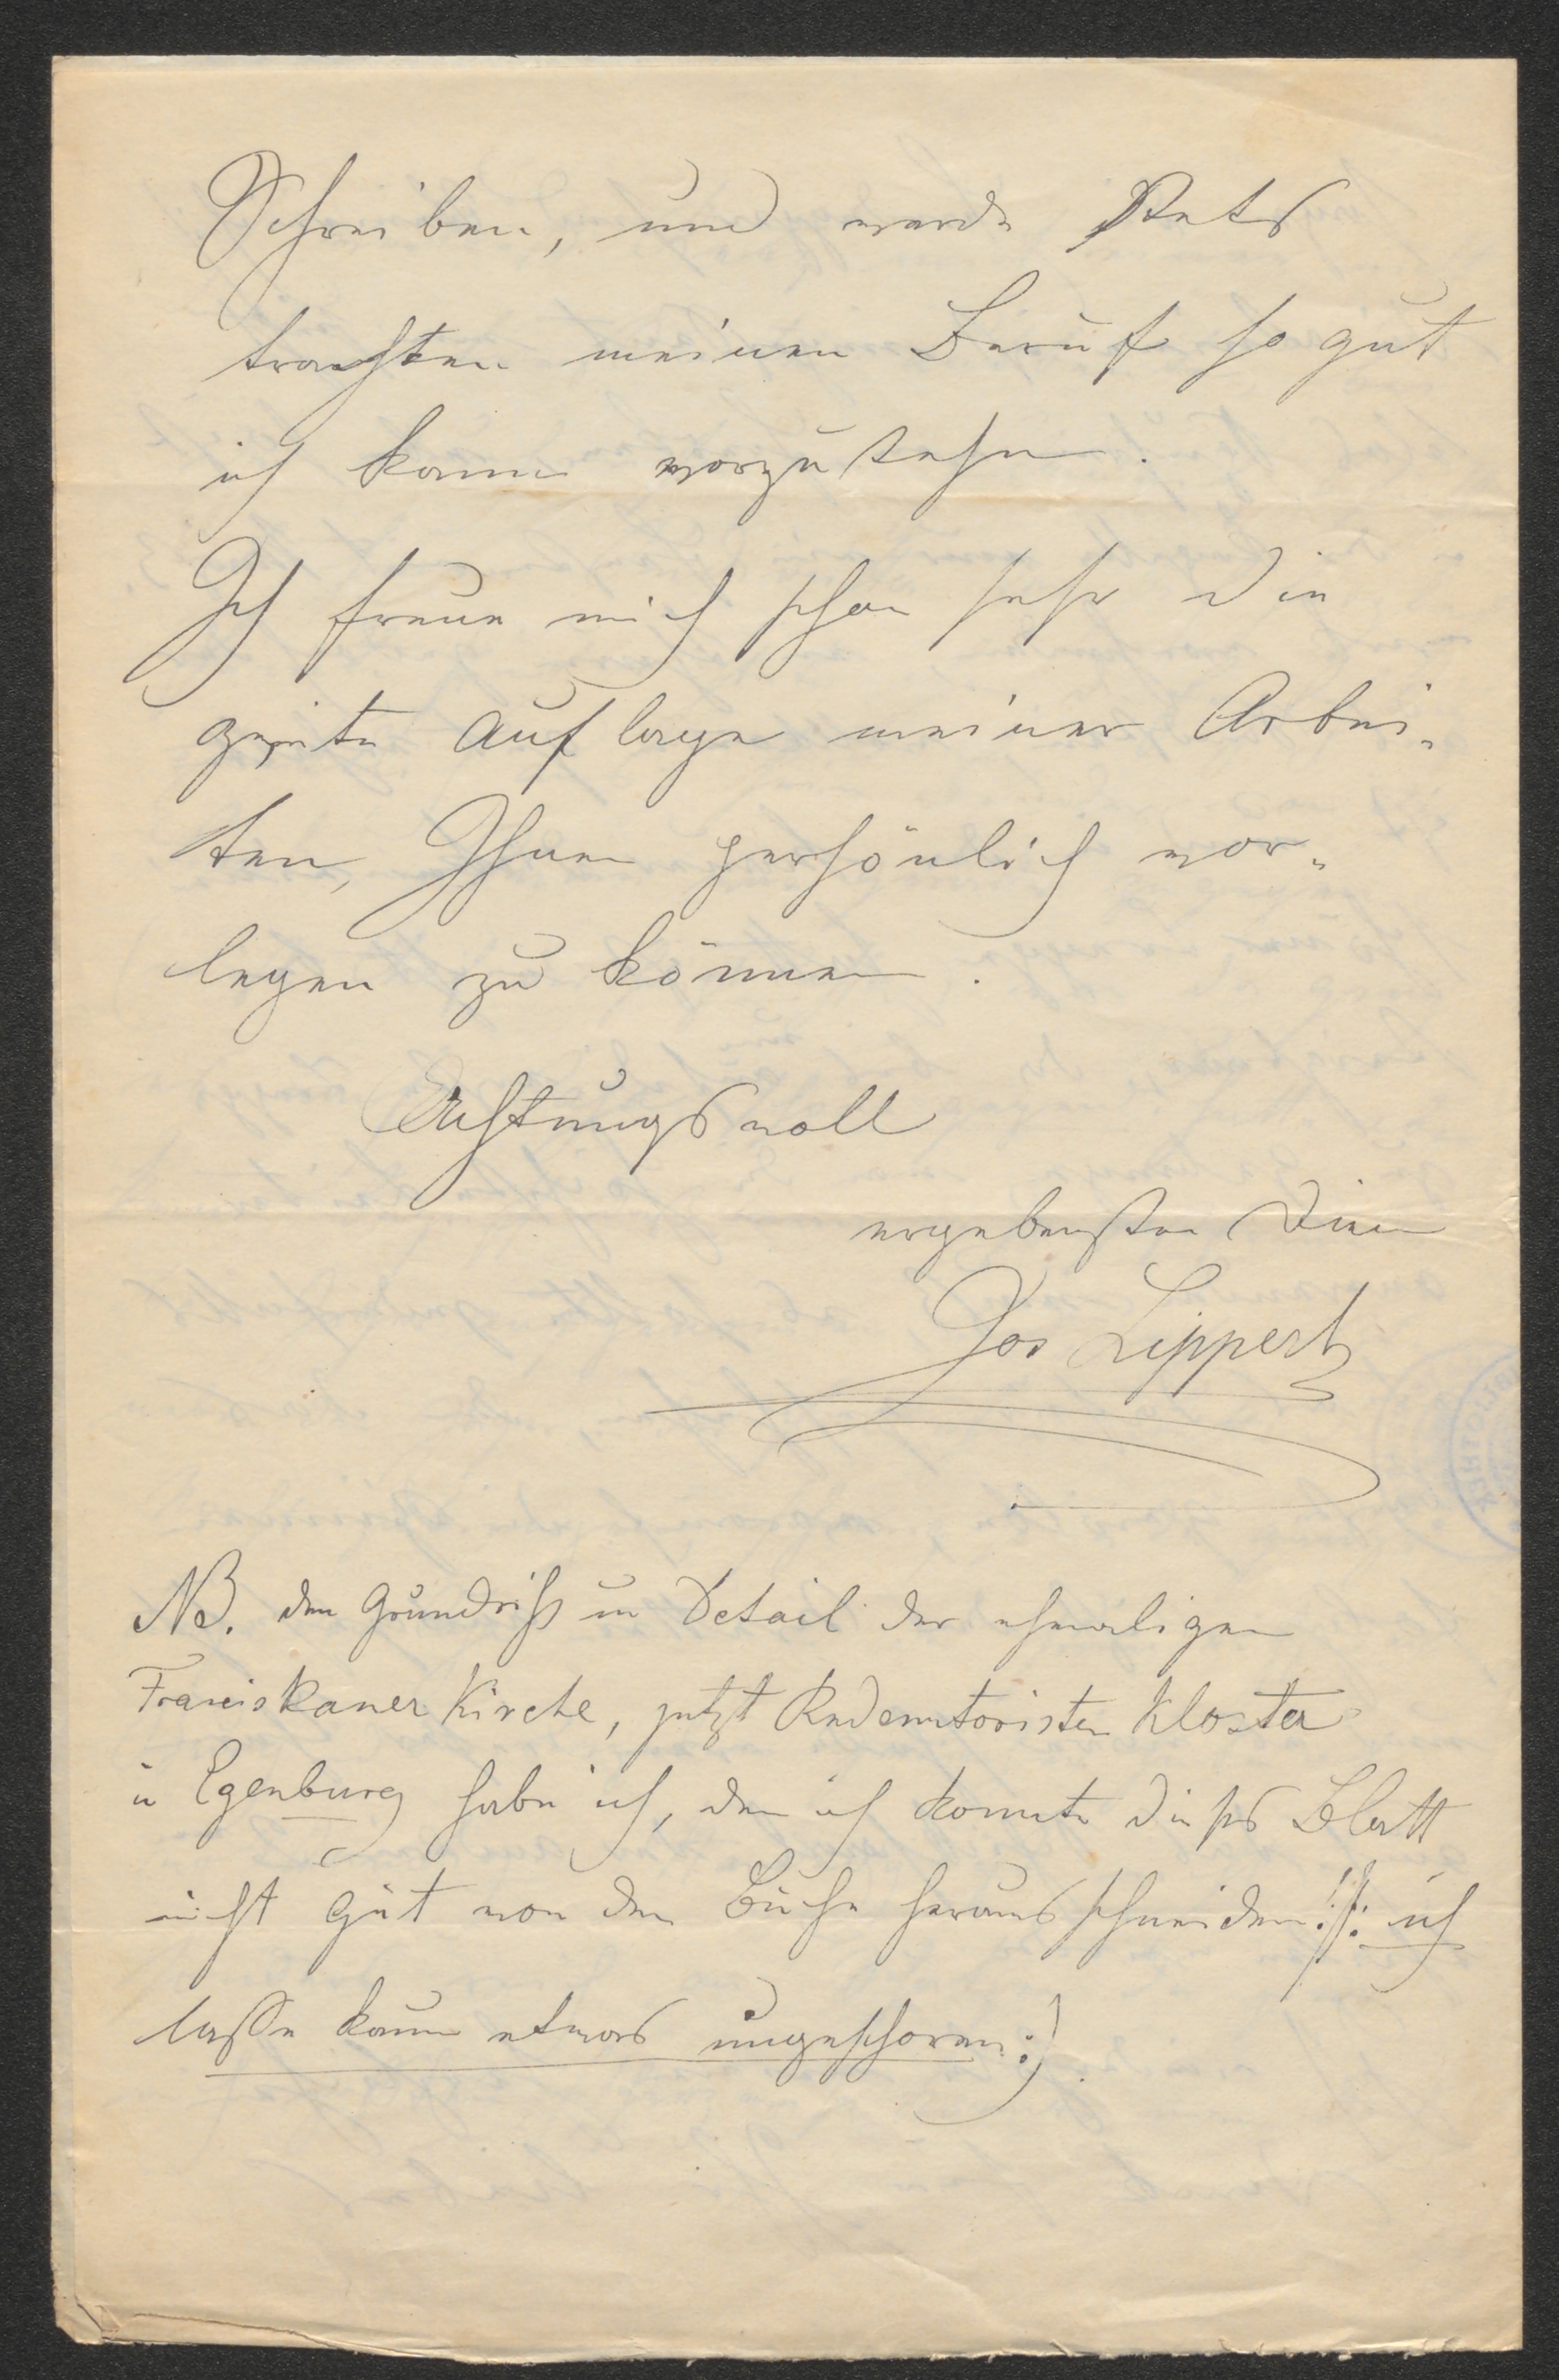 Schreiben, und werde stets
trachten meinen Beruf so gut
ich kann vorzustehn.
Ich freue mich schon sehr die
zweite Auflage meiner Arbei„
ten, Ihnen persönlich vor„
legen zu können.
Achtungsvoll
ergebenster Diener
Jos Lippert
NB. den Grundriß u Detail der ehmaligen
Franciskaner Kirche, jetzt Redemtoristen Kloster
in Egenburg habe ich, den ich konnte dießes Blatt
nicht gut von dem Buche herausschneiden! /: ich
lasse kaum etwas ungeschoren :/